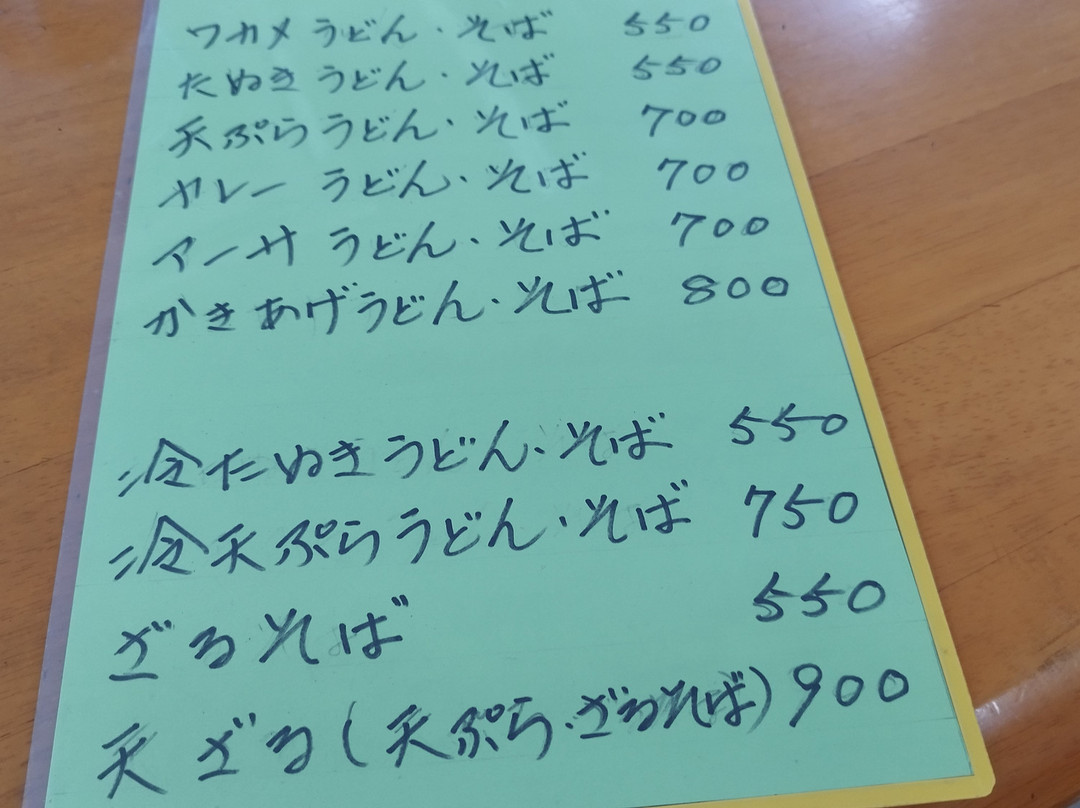 ワカメうどん・そば 550
たぬきうどん・そば 550
天ぷらうどん・そば 700
カレーうどん・そば 700
アーサうどん・そば 700
かきあげうどん・そば 800
冷たぬきうどん・そば 550
冷天ぷらうどん・そば 750
ざるそば 550
天ざる(天ぷら・ざるそば) 900